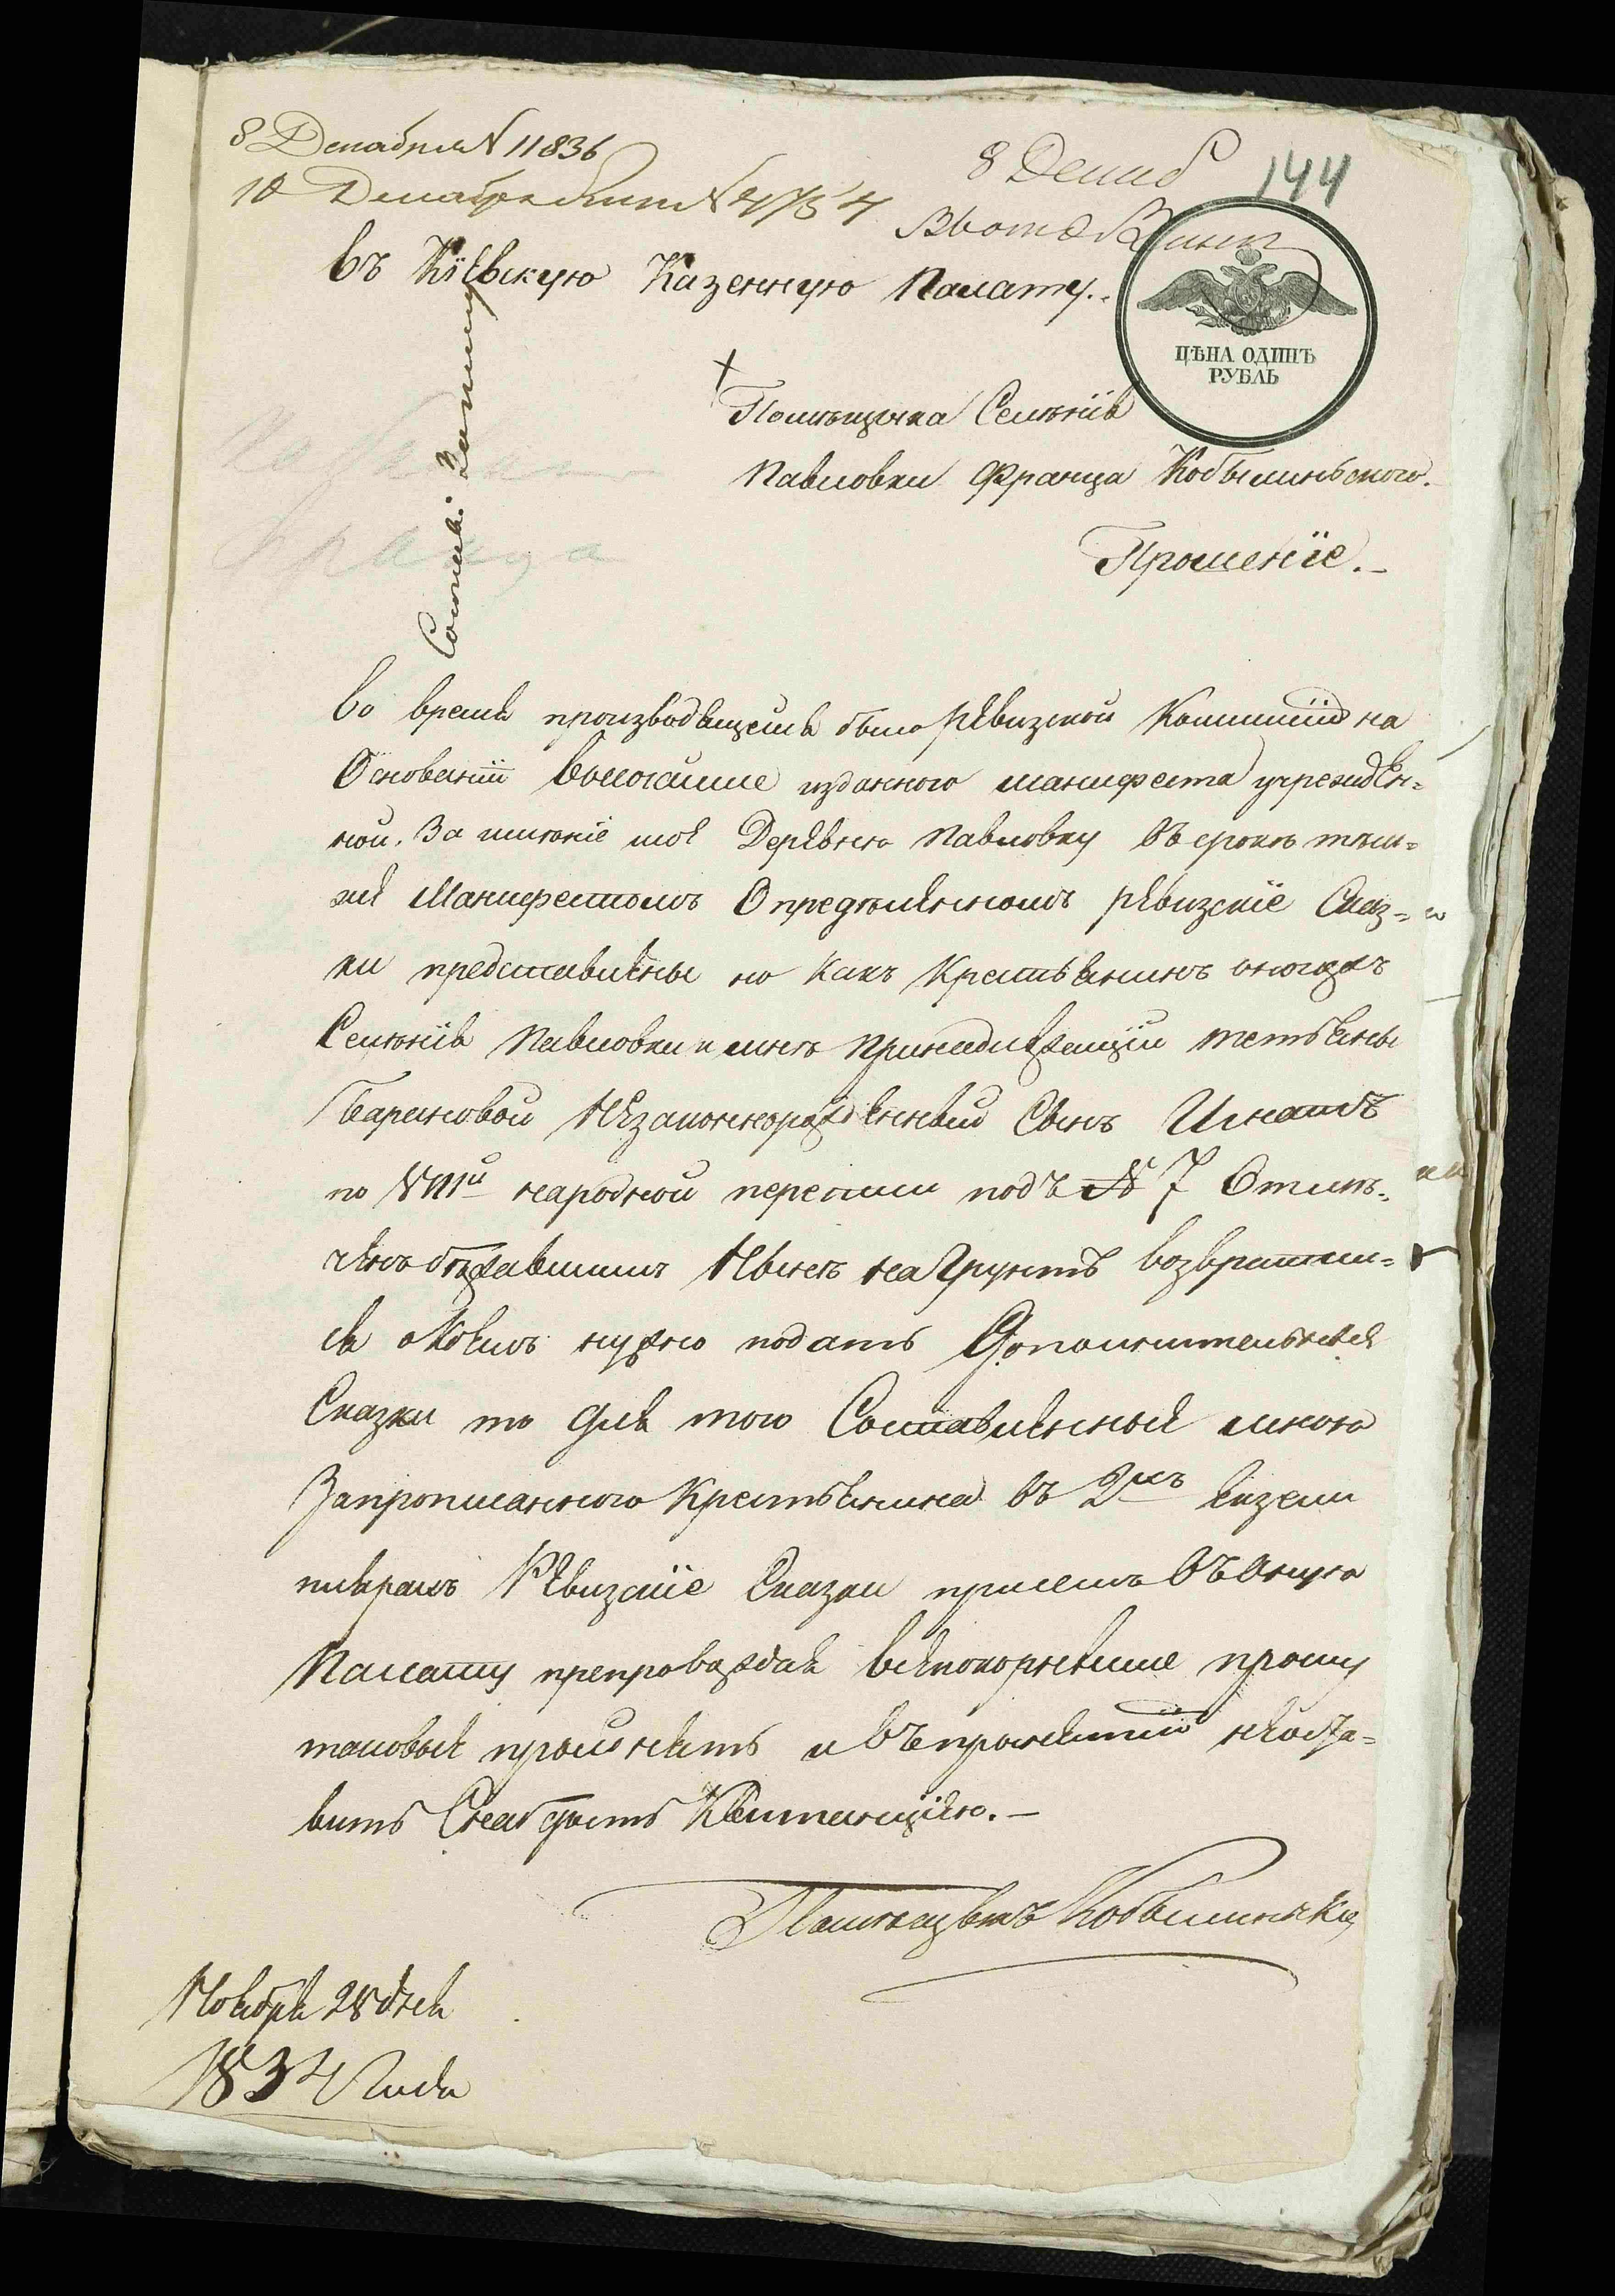 8 Декабря № 11836
10 Декабря № 4754
8 Декаб
144
Въ Кіевскую Казенную Палату.
ЦѢНА ОДИНЪ
РУБЛЬ
Помѣщика Селенія
Павловки Франца Кобылиньского.
Прошеніе.
Во время производящейся было Ревизкой Коммиссіи на
Основаніи высочайше изданного манифеста учрежден-
ной. За имѣніе мое Деревню Павловку въ срокъ тѣм-
же Манифестомъ Опредѣленномъ ревизскіе Сказ-
ки представлены но какъ Крестьянинъ
Селенія Павловки и мнѣ принадлежащій Тетьяны
Бариновой Незаконнорожденный Сынъ Игнатъ
по VIIIй народной переписи подъ № 7 Отмѣ-
ченъ бѣжавшимъ Нынѣ на Грунтъ возвратил-
ся о коемъ нужно подать Дополнительные
Сказки то для того Составленныя мною
Запрописанного Крестьянина въ 2хъ Екзем
плярахъ Ревизскіе Сказки присемъ въ Оную
Палату препровождая всепокорнейше прошу
таковые принять и въ принятіи неоста-
вить Снабдить Квитанціею.
Помѣщикъ Кобылинскій
Ноября 28 дня
1834 Года